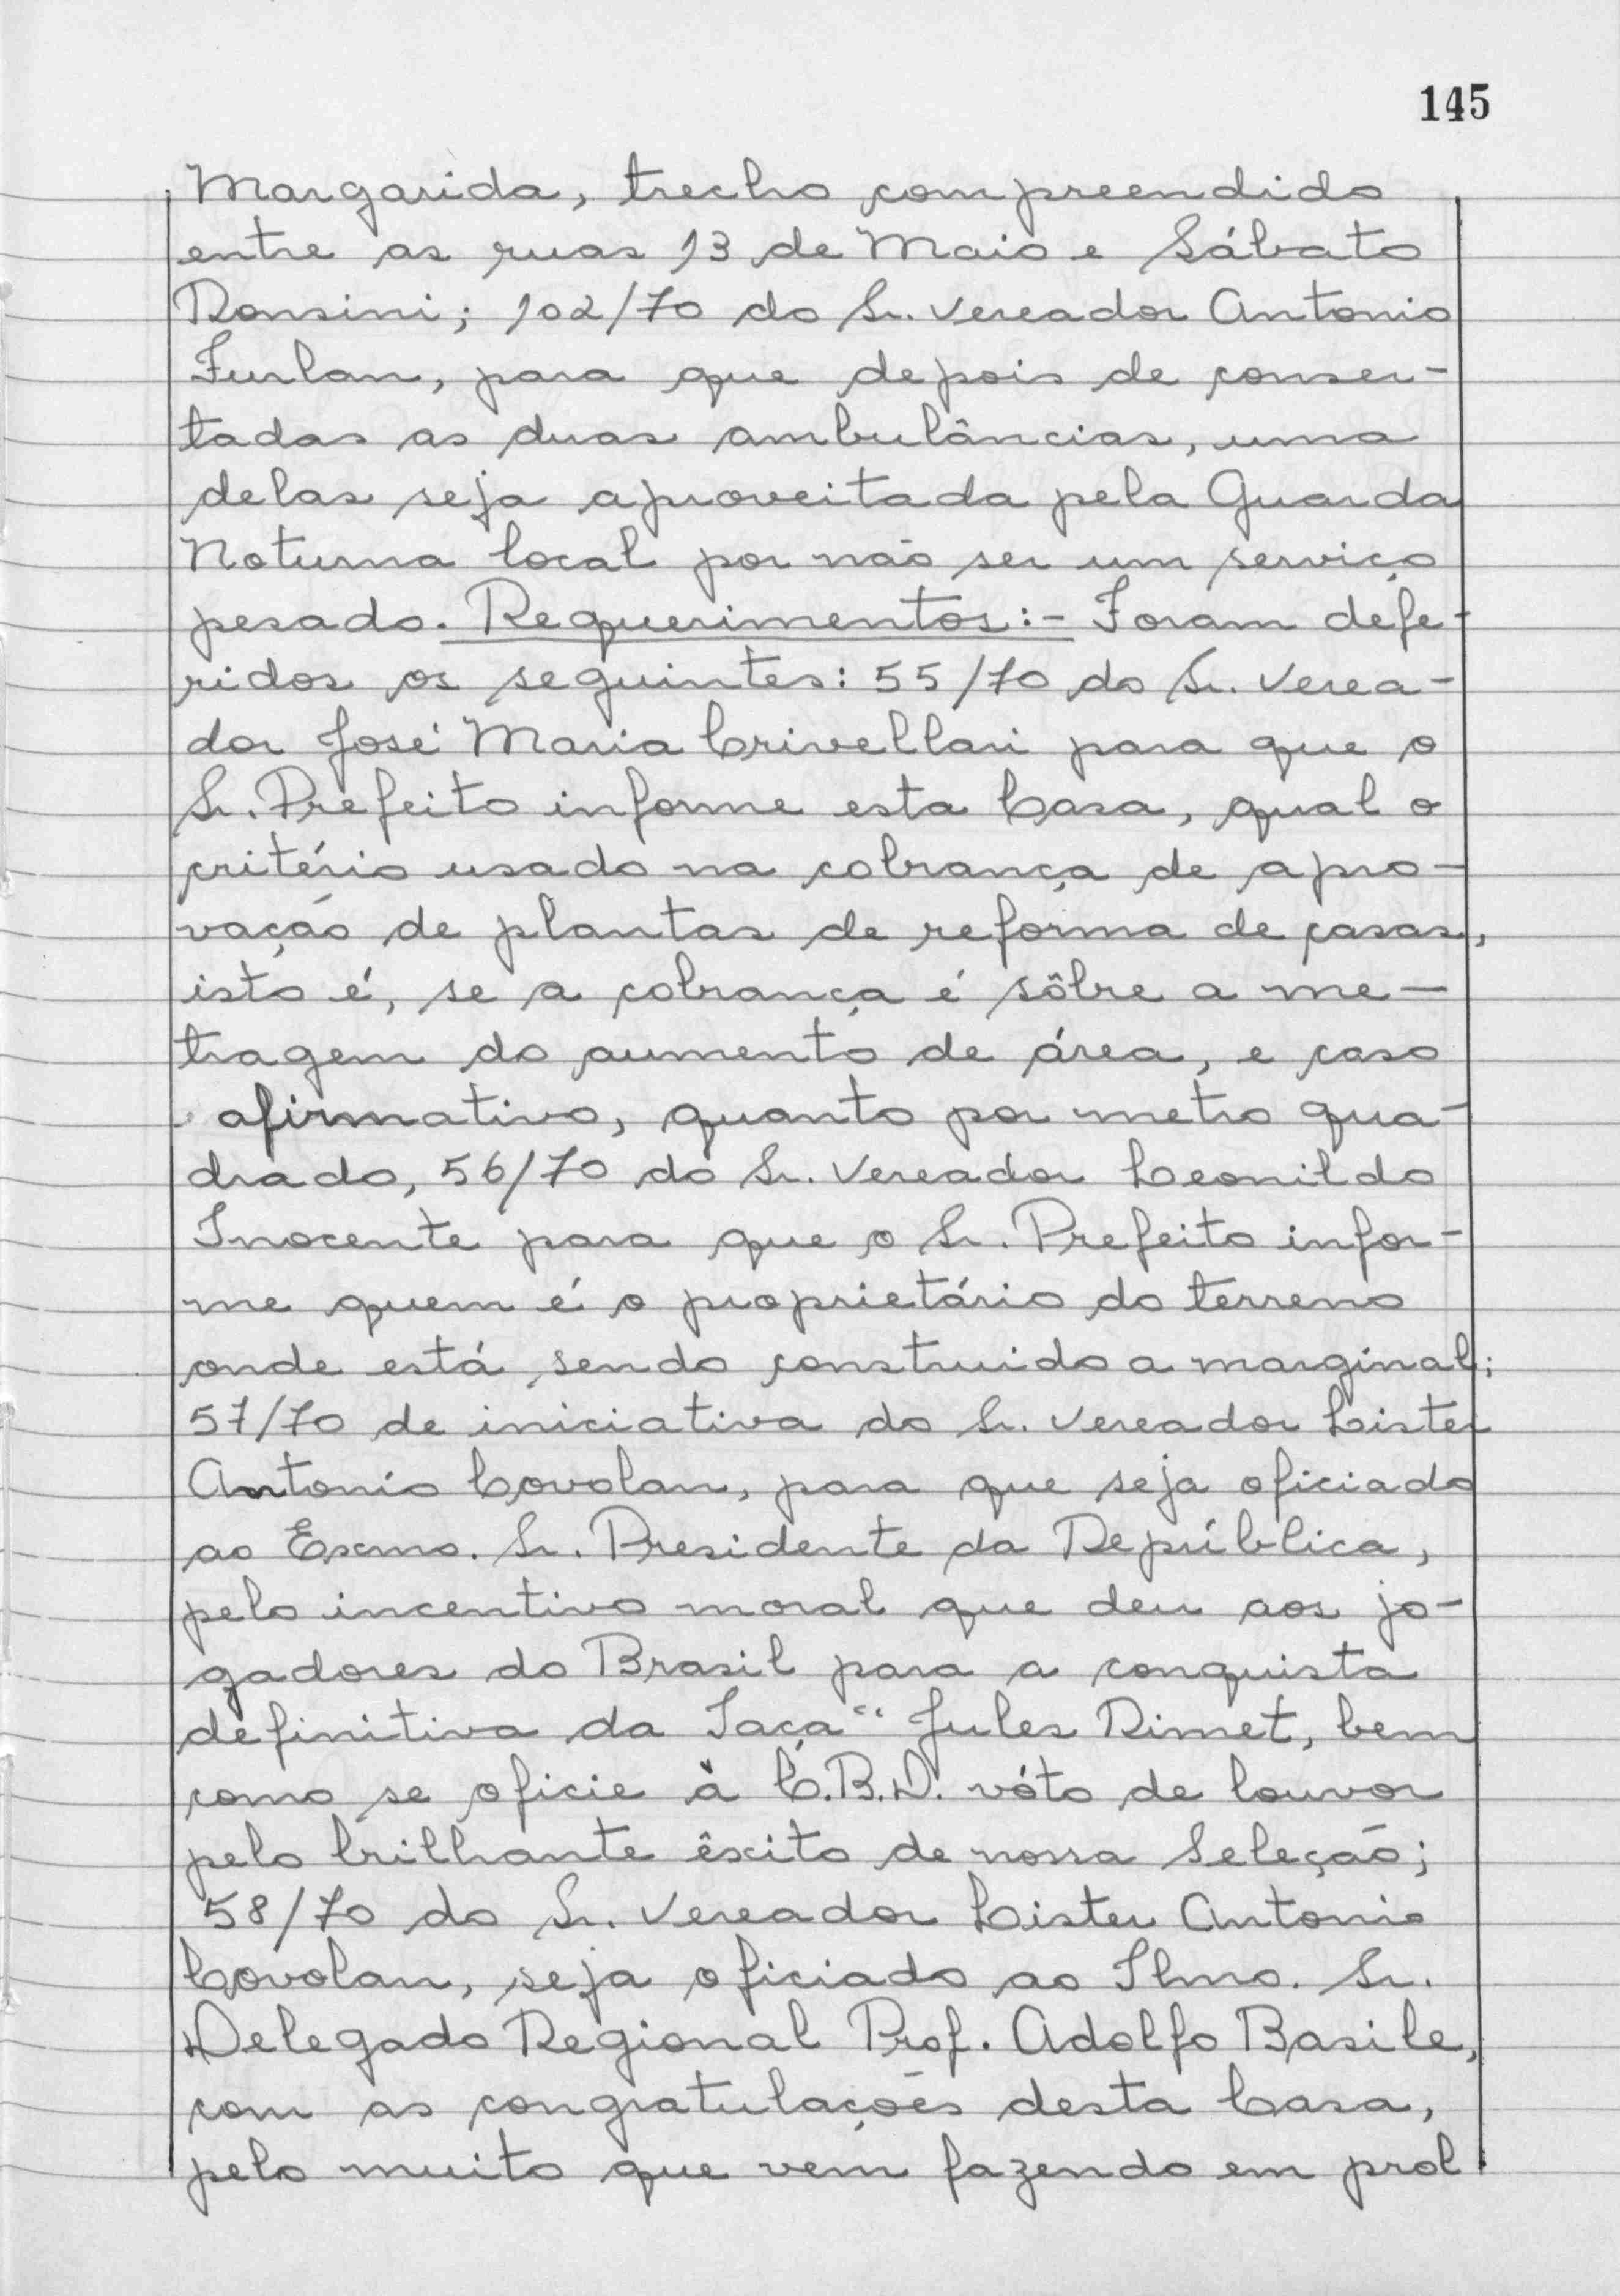 145
Margarida, trecho compreendido
entre as ruas 13 de Maio e Sábato
Ronsini; 102/70 do Sr. Vereador Antonio
Furlan, para que depois de conser-
tadas as duas ambulâncias, uma
delas seja aproveitada pela Guarda
Noturna local por não ser um serviço
pesado. Requerimentos:- Foram defe-
ridos os seguintes: 55/70 do Sr. Verea-
dor José Maria Crivellari para que o
Sr. Prefeito informe esta Casa, qual o
critério usado na cobrança de apro-
vação de plantas de reforma de casas,
isto é, se a cobrança é sôbre a me-
tragem do aumento de área, e caso
afirmativo, quanto por metro qua-
drado, 56/70 do Sr. Vereador Leonildo
Inocente para que o Sr. Prefeito infor-
me quem é o proprietário do terreno
onde está sendo construido a marginal;
57/70 de iniciativa do Sr. Vereador Lister
Antonio Covolan, para que seja oficiado
ao Exmo. Sr. Presidente da República,
pelo incentivo moral que deu aos jo-
gadores do Brasil para a conquista
definitiva da Taça "Jules Rimet, bem
como se oficie à C.B.D. vóto de louvor
pelo brilhante êxito de nossa Seleção;
58/70 do Sr. Vereador Lister Antonio
Covolan, seja oficiado ao Ilmo. Sr.
Delegado Regional Prof. Adolfo Basile,
com as congratulações desta Casa,
pelo muito que vem fazendo em prol